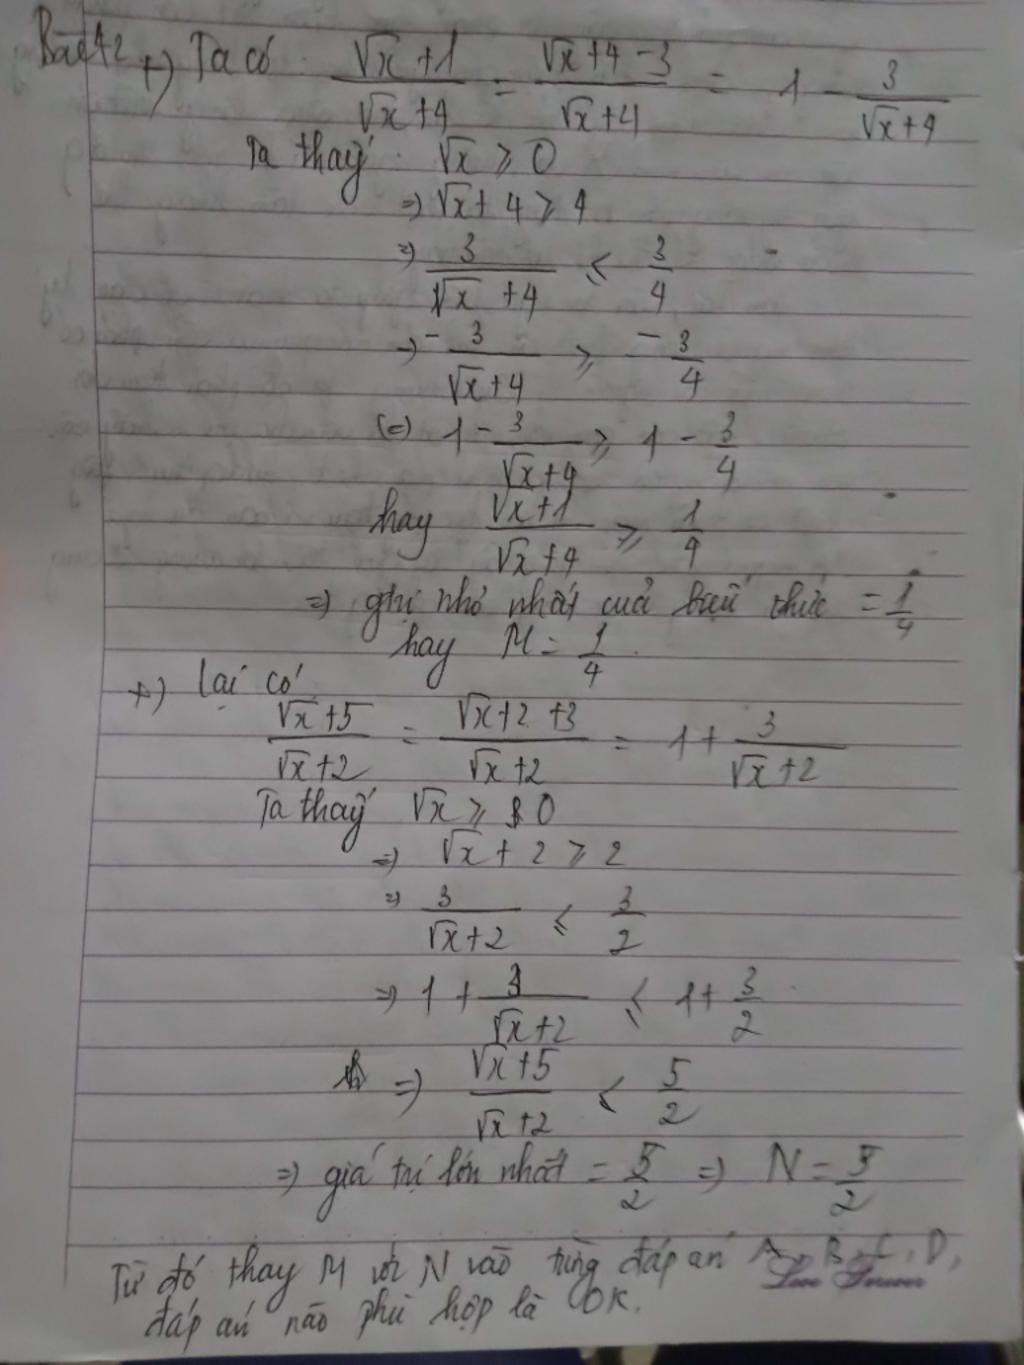 Bài 42 +) Ta có : (√x+1)/(√x+4) = (√x+4-3)/(√x+4) = 1 - 3/(√x+4)
Ta thấy : √x ⩾ 0
=> √x + 4 ⩾ 4
=> 3/(√x+4) ⩽ 3/4
=> -3/(√x+4) ⩾ -3/4
(=) 1 - 3/(√x+4) ⩾ 1 - 3/4
hay (√x+1)/(√x+4) ⩾ 1/4
=> gtrị nhỏ nhất cuả biểu thức = 1/4
hay M = 1/4.
+) Lại có
(√x+5)/(√x+2) = (√x+2+3)/(√x+2) = 1 + 3/(√x+2)
Ta thấy √x ⩾ 0
=> √x + 2 ⩾ 2
=> 3/(√x+2) ⩽ 3/2
=> 1 + 3/(√x+2) ⩽ 1 + 3/2
=> (√x+5)/(√x+2) ⩽ 5/2
=> giá trị lớn nhất = 5/2 => N = 5/2
Từ đó thay M với N vào từng đáp án A, B, C, D,
Love Forever
đáp án nào phù hợp là OK.